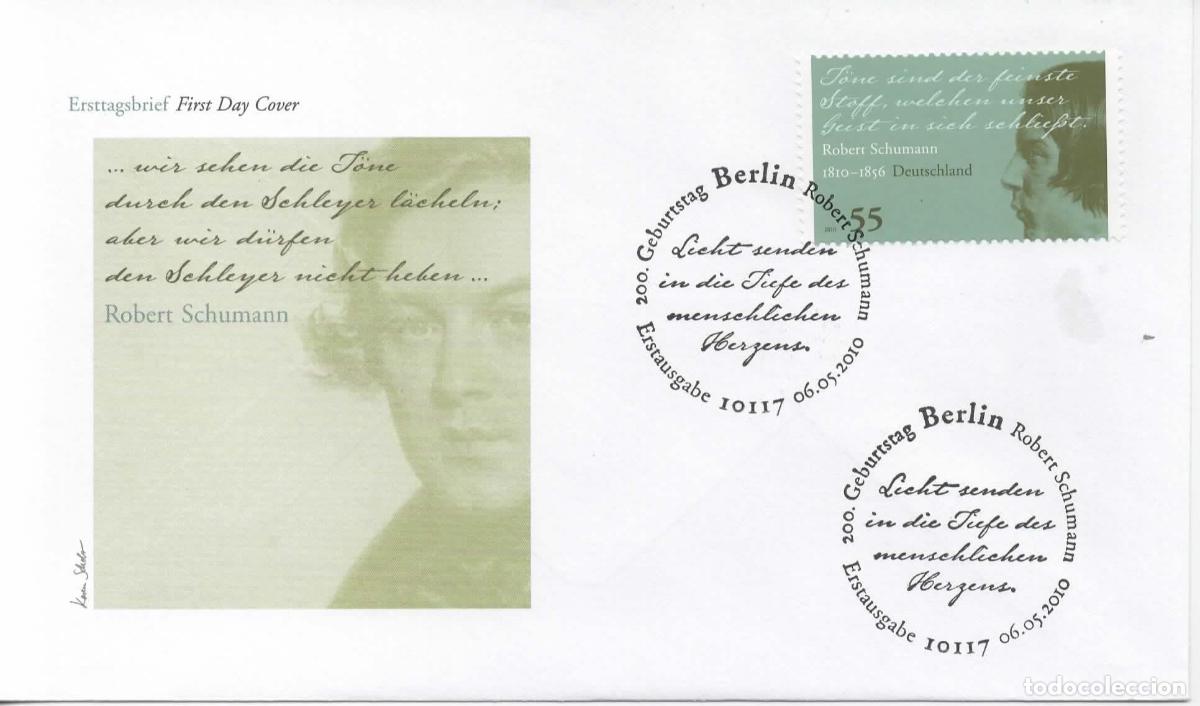 Ersttagsbrief First Day Cover
... wir sehen die Töne
durch den Schleyer lächeln;
aber wir dürfen
den Schleyer nicht heben ...
Robert Schumann
Töne sind der feinste
Stoff, welchen unser
Geist in sich schließt.
Robert Schumann
1810–1856 Deutschland
2010 55
200. Geburtstag Berlin Robert Schumann
Licht senden
in die Tiefe des
menschlichen
Herzens.
Erstausgabe 10117 06.05.2010
200. Geburtstag Berlin Robert Schumann
Licht senden
in die Tiefe des
menschlichen
Herzens.
Erstausgabe 10117 06.05.2010
todocoleccion